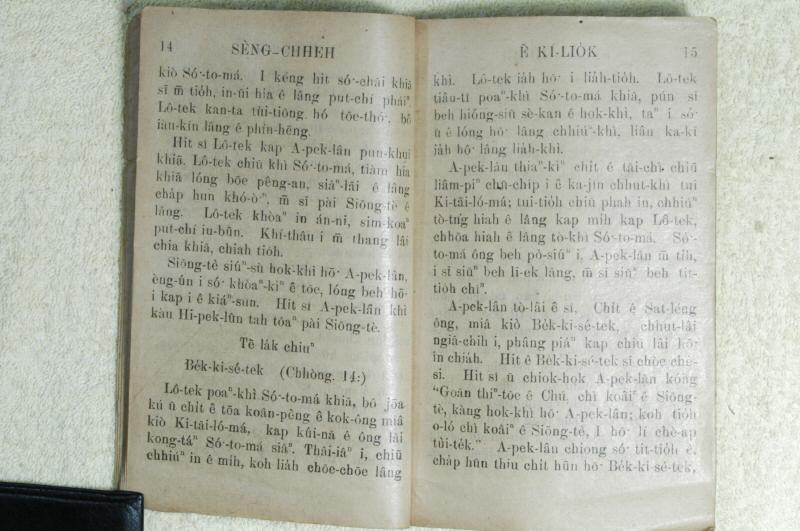 14 SÈNG-CHHEH
kiò Só·-to-má. I kéng hit só·-chāi khiā
sī m̄ tio̍h, in-ūi hia ê lâng put-chí pháiⁿ
Lô-tek kan-ta tùi-tiōng hó tōe-thó·, bô
iàu-kín lâng ê phín-hēng.
Hit sî Lô-tek kap A-pek-lân pun-khui
khiā. Lô-tek chiū khì Só·-to-má, tiàm hia
khiā lóng bōe pêng-an, siáⁿ-lāi ê lâng
cha̍p hun khó-ò·ⁿ, m̄ sī pài Siōng-tè ê
lâng. Lô-tek khòaⁿ in án-ni, sim-koaⁿ
put-chí iu-būn. Khí-thâu i m̄ thang lâi
chia khiā, chiah tio̍h.
Siōng-tè siúⁿ-sù hok-khì hō· A-pek-lân,
èng-ún i só· khòaⁿ-kìⁿ ê tōe, lóng beh hō·
i kap i ê kiáⁿ-sun. Hit sî A-pek-lân khì
kàu Hi-pek-lûn tah tôaⁿ pài Siōng-tè.
Tē la̍k chiuⁿ
Be̍k-ki-sé-tek (Chhòng. 14:)
Lô-tek poaⁿ-khì Só·-to-má khiā, bô jōa
kú ū chi̍t ê tōa koân-pèng ê kok-ông miâ
kiò Ki-tāi-ló-má, kap kúi-nā ê ông lâi
kong-táⁿ Só·-to-má siâⁿ. Thâi-iâⁿ i, chiū
chhiúⁿ in ê mi̍h, koh lia̍h chōe-chōe lâng
Ê KÌ-LIO̍K 15
khì. Lô-tek iáh hō· i lia̍h-tio̍h. Lô-tek
tiâu-tî poaⁿ-khì Só·-to-má khiā, pún sī
beh hióng-siū sè-kan ê hok-khì, taⁿ i só·
ū ê lóng hō· lâng chhiúⁿ-khì, liân ka-kī
iáh hō· lâng lia̍h-khì.
A-pek-lân thiaⁿ-kìⁿ chit ê tāi-chì chiū
liâm-piⁿ chū-chi̍p i ê ka-jîn chhut-khì tui
Ki-tāi-ló-má; tui-tio̍h chiū phah in, chhiúⁿ
tò-tńg hiah ê lâng kap mi̍h kap Lô-tek,
chhōa hiah ê lâng tò-khì Só·-to-má. Só·-
to-má ông beh pò-siúⁿ i, A-pek-lân m̄ ti̍h,
i sī siūⁿ beh lī-ek lâng, m̄ sī siūⁿ beh tit-
tio̍h chîⁿ.
A-pek-lân tò-lâi ê sî, Chi̍t ê Sat-léng
ông, miâ kiò Be̍k-ki-sé-tek, chhut-lâi
ngiâ-chih i, phâng piáⁿ kap chiú lâi hō·
in chia̍h. Hit ê Be̍k-ki-sé-tek sī chòe chè-
si. Hit sî ū chiok-hok A-pek-lân kóng
"Goān thiⁿ-tōe ê Chú, chì koâiⁿ ê Siōng-
tè, kàng hok-khì hō· A-pek-lân; koh tio̍h
o-ló chì koâiⁿ ê Siōng-tè, I hō· lí chè-ap
tùi-te̍k." A-pek-lân chiong só· tit-tio̍h ê,
cha̍p hūn thiu chi̍t hūn hō· Be̍k-ki-sé-tek,